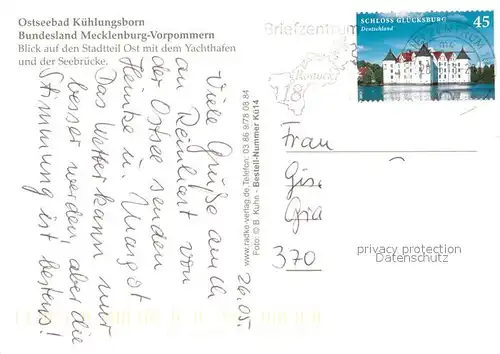 Ostseebad Kühlungsborn
Bundesland Mecklenburg-Vorpommern
Blick auf den Stadtteil Ost mit dem Yachthafen
und der Seebrücke.
Viele Grüße auch
an Reinhart von
der Ostsee senden
Heinke u. Margot
Das Wetter kann nur
besser werden, aber die
Stimmung ist bestens!
26.05
www.radke-verlag.de, Telefon: 03 86 9/78 08 84
Foto: © B. Kuhn - Bestell-Nummer Kü14
Briefzentrum
Rostock
18
SCHLOSS GLÜCKSBURG
Deutschland
45
Frau
Gise
Gra
370
privacy protection
VEROLINE.de